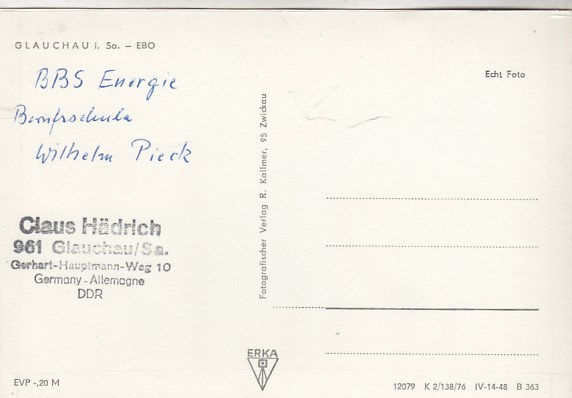 GLAUCHAU i. Sa. – EBO
BBS Energie
Berufsschule
Wilhelm Pieck
Echt Foto
Claus Hädrich
961 Glauchau/Sa.
Gerhart-Hauptmann-Weg 10
Germany-Allemagne
DDR
Fotografischer Verlag R. Kallmer, 95 Zwickau
ERKA
EVP -,20 M
12079 K 2/138/76 IV-14-48 B 363